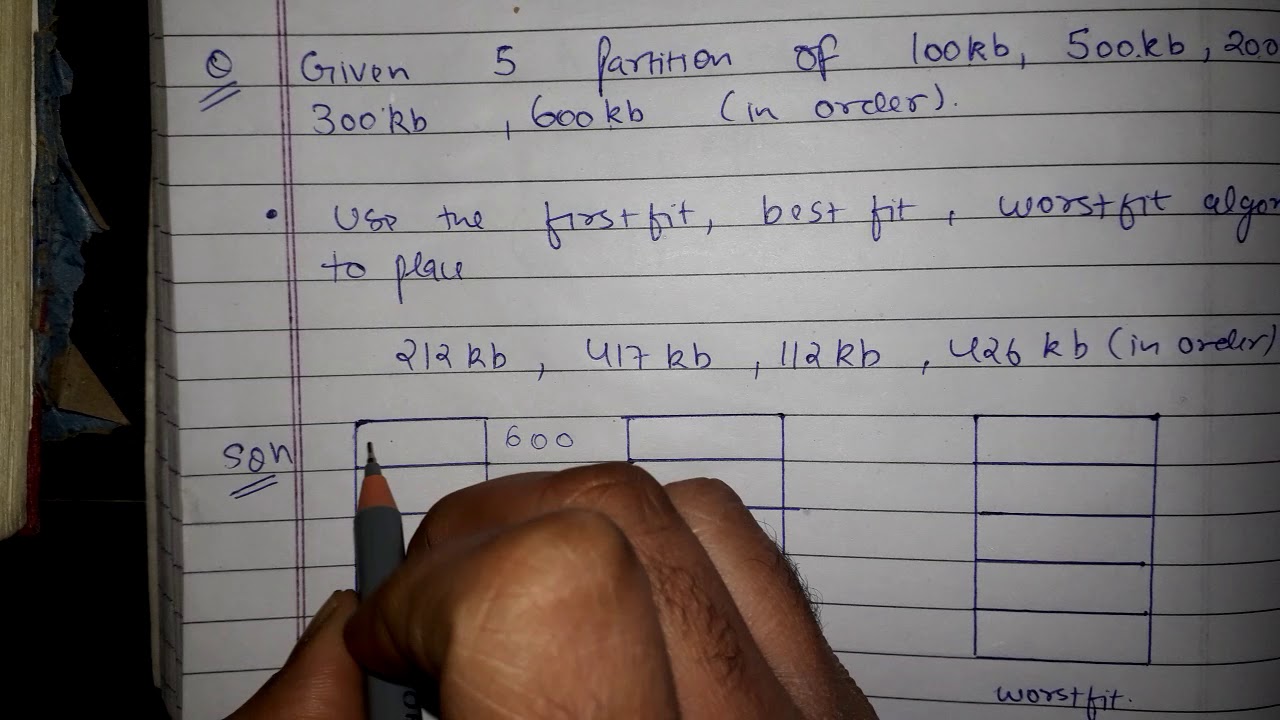 Q Given 5 Partition of 100kb, 500kb, 200
300kb , 600kb (in order).
• Use the first fit, best fit , worst fit algor
to place
212 kb , 417 kb , 112 kb , 426 kb (in order)
Soln 600
worstfit.